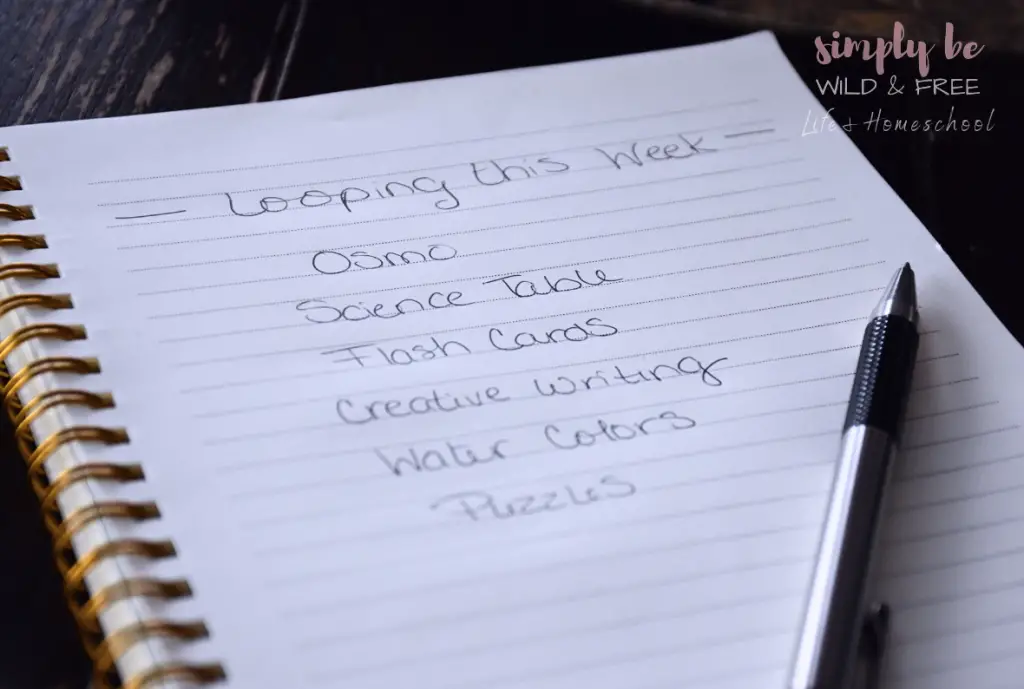 simply be
WILD & FREE
Life + Homeschool
— Looping this Week —
Osmo
Science Table
Flash Cards
Creative Writing
Water Colors
Puzzles